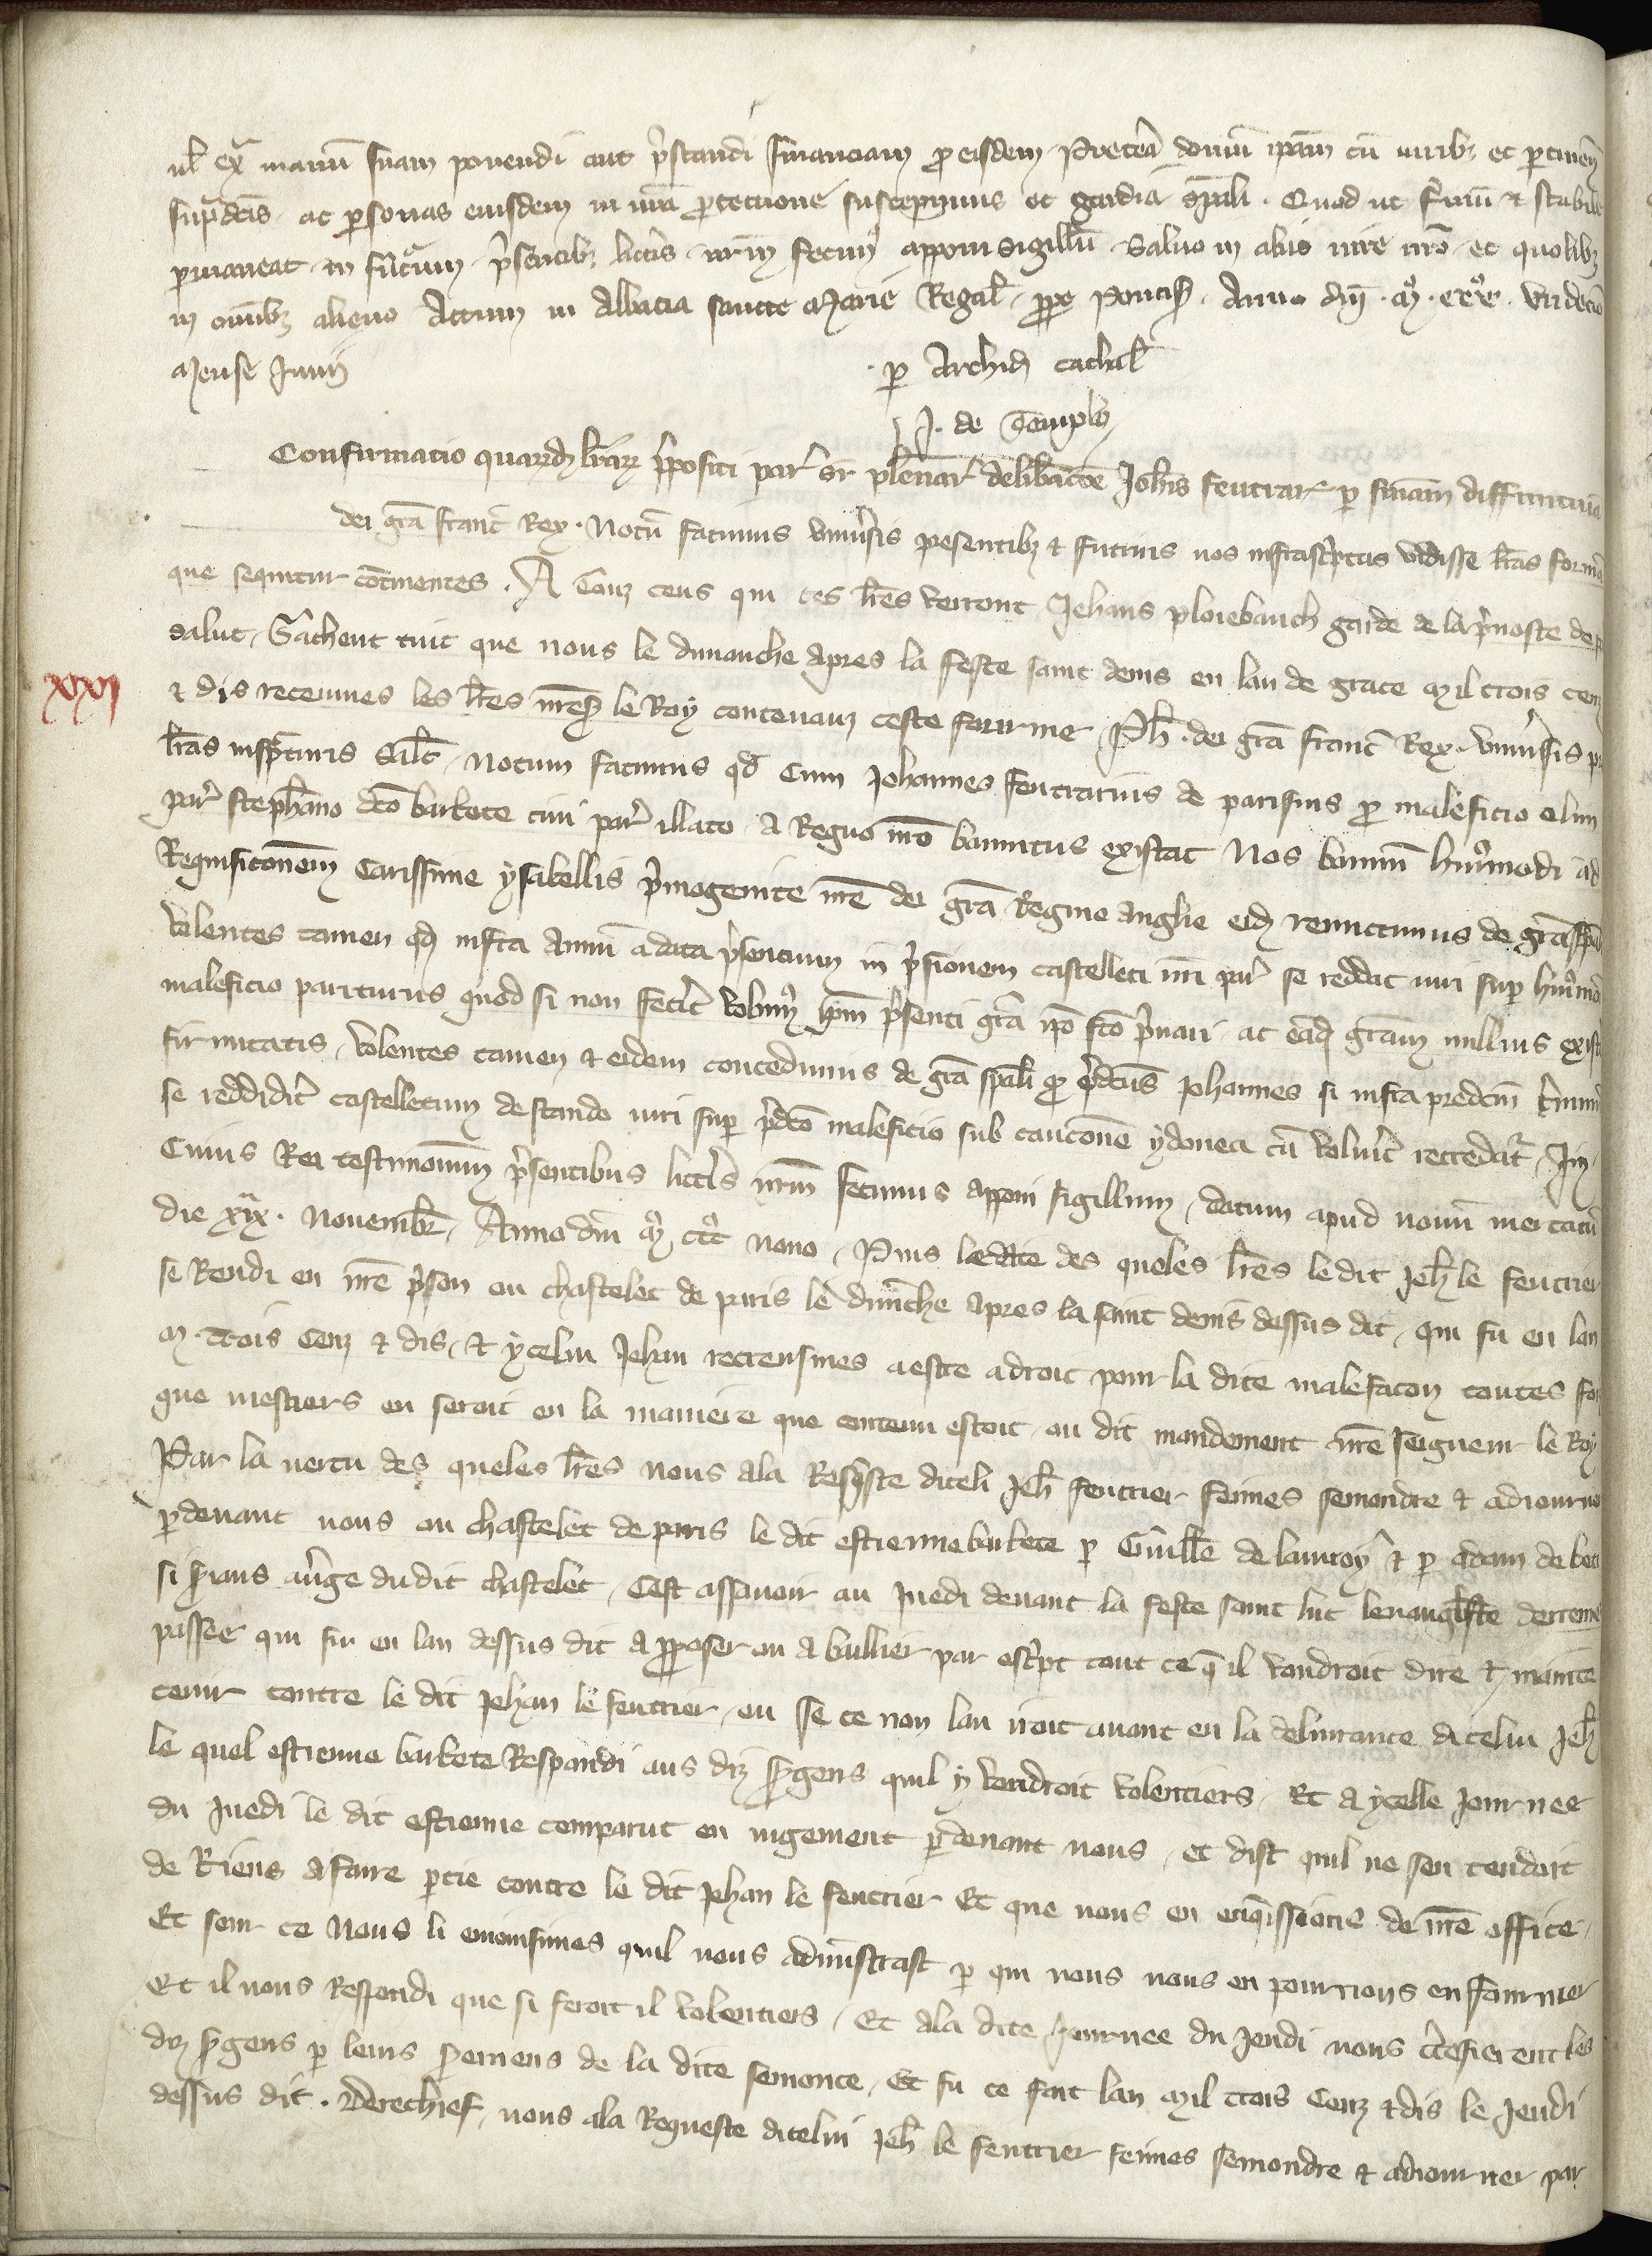 ul̃ extͣ manũ suam ponendi aut p̃standi financiam ꝓ eisdem Pretea domũ ip̃am cũ iurib; et ꝑtineñ
sup̃dc̃is ac ꝑsonas eiusdem in nr̃a ꝓtectione suscepimus et gardia sp̃ali . Quod ut firmũ & stabile
ꝑmaneat in futͣum p̃sentib; litt̃is nr̃m fecim⁹ apponi sigillũ Saluo in aliis iure nr̃o et quolib;
in om̃ib; alieno Actum in Abbacia sancte Marie Regal̃ ꝓpe Pontis̃ . Anno dñi . m̊ . ccc̊ . Vndecĩo
Mense Junii
ꝑ Archid̃ cathal̃
J. de Templo
Confirmacio quarũd̃ lr̃ar̃ p̃positi par̃ sr̃ plenar̃ delib̃ac̃õe Joh̃is feutrar̃ ꝑ sñiam diffinitiuã
dei gr̃a franc̃ Rex . Notũ facimus vniũsis presentib; & futuris nos infrasc̃ptas vidisse lr̃as formã
que sequitur c̃otinentes . A Touz ceus qui ces lr̃es verront Jehans ploiebauch garde de la p̃uoste de p
salut , Sachent tuit que nous le dimanche apres la feste saint denis en lan de grace Mil trois cenz
XXI
& dis receumes les lr̃es nr̃es̃ le Roy contenanz ceste fourme Ph̃ . dei gr̃a franc̃ Rex . vniũsis p
lr̃as inspecturis Sal̃t , Notum facimus qd̃ Cum Johannes feutrarius de parisius ꝓ maleficio olim
par̃ steph̃ano dc̃o barbete ciui par̃ illato A Regno nr̃o bannitus existat Nos bannũ hui⁹modi ad
Requisic̃onem Carissime ysabellis p̃mogenite nr̃e dei gr̃a Regine anglie eid̃ remittimus de gr̃a sp̃ali
Volentes tamen qd̃ infra annũ a data p̃sentium in p̃sionem castelleti nr̃i par̃ se reddat iuri sup̃ hui⁹mõi
maleficio pariturus quod si non fec̃it volum⁹ ip̃m p̃senti gr̃a ip̃o fc̃o p̃uari ac ead̃ gr̃am nullius exist
firmitatis , Volentes tamen & eidem concedimus de gr̃a sp̃ali ꝙ p̃dc̃us Johannes si infra predc̃m t̃minũ
se reddid̃it castelletum de stando iuri sup̃ p̃dc̃o maleficio sub cauc̃one ydonea cũ volũit recredat̃ . In
Cuius Rei testimonium p̃sentibus litt̃is nr̃m fecimus apponi sigillum , datum apud nouũ mercatũ
die xixͣ . Nouembr̃ , Anno dñi m̊ ccc̊ nono , Puis la date des queles lr̃es le dit Jeh̃ le feutrier
se Rendi en nr̃e p̃son ou chastelet de paris le dim̃che apres la saint denis dessus dit , qui fu en lan
M . Trois Cenz & dis , & ycelui Jehan recreusmes a estre a droit pour la dite malefac̃on toutes foi
que mestiers en seroit en la maniere que contenu estoit ou dit mandement nr̃e seigneur le Roy
Par la uertu des queles lr̃es nous ala Req̃ste diceli Jeh̃ feutrier feimes semondre & adiourner
ꝑdeuant nous ou chastelet de paris le dit estienne barbete ꝑ Guill̃e de launoy & ꝑ adam de beu
si s̃ians a ũge dudit chastelet , Cest assauoir au Juedi deuant la feste saint luc leuangl̃iste derreine
passee qui fu en lan dessus dit a ꝓposer ou a baillier par esc̃pt tout ce q̃ il voudroit dire & mainte
tenir contre le dit Jehan le feutrier , ou se ce non lan iroit auant en la deliurance dicelui Jeh̃
le quel estienne barbete Respondi aus diz s̃gens quil y vendroit volentiers , Et a ycelle Journee
du Juedi le dit estienne comparut en iugement ꝑdeuant nous , et dist quil ne sen tendoit
de Riens afaire ꝑtie contre le dit Jehan le feutrier Et que nous en enq̃issions de nr̃e office ,
Et seur ce Nous li enioinsimes quil nous adminstrast ꝑ qui nous nous en pourrions enfourmer
Et il nous Respondi que si feroit il volentiers , Et ala dite Journee du Jeudi nous c̃tefierent les
diz s̃gens ꝑ leurs s̃emens de la dite semonce , Et fu ce fait lan Mil trois Cenz & dis le Jeudi
dessus dit . Derechief , nous ala Requeste dicelui Jeh̃ le feutrier feimes semondre & adiourner par